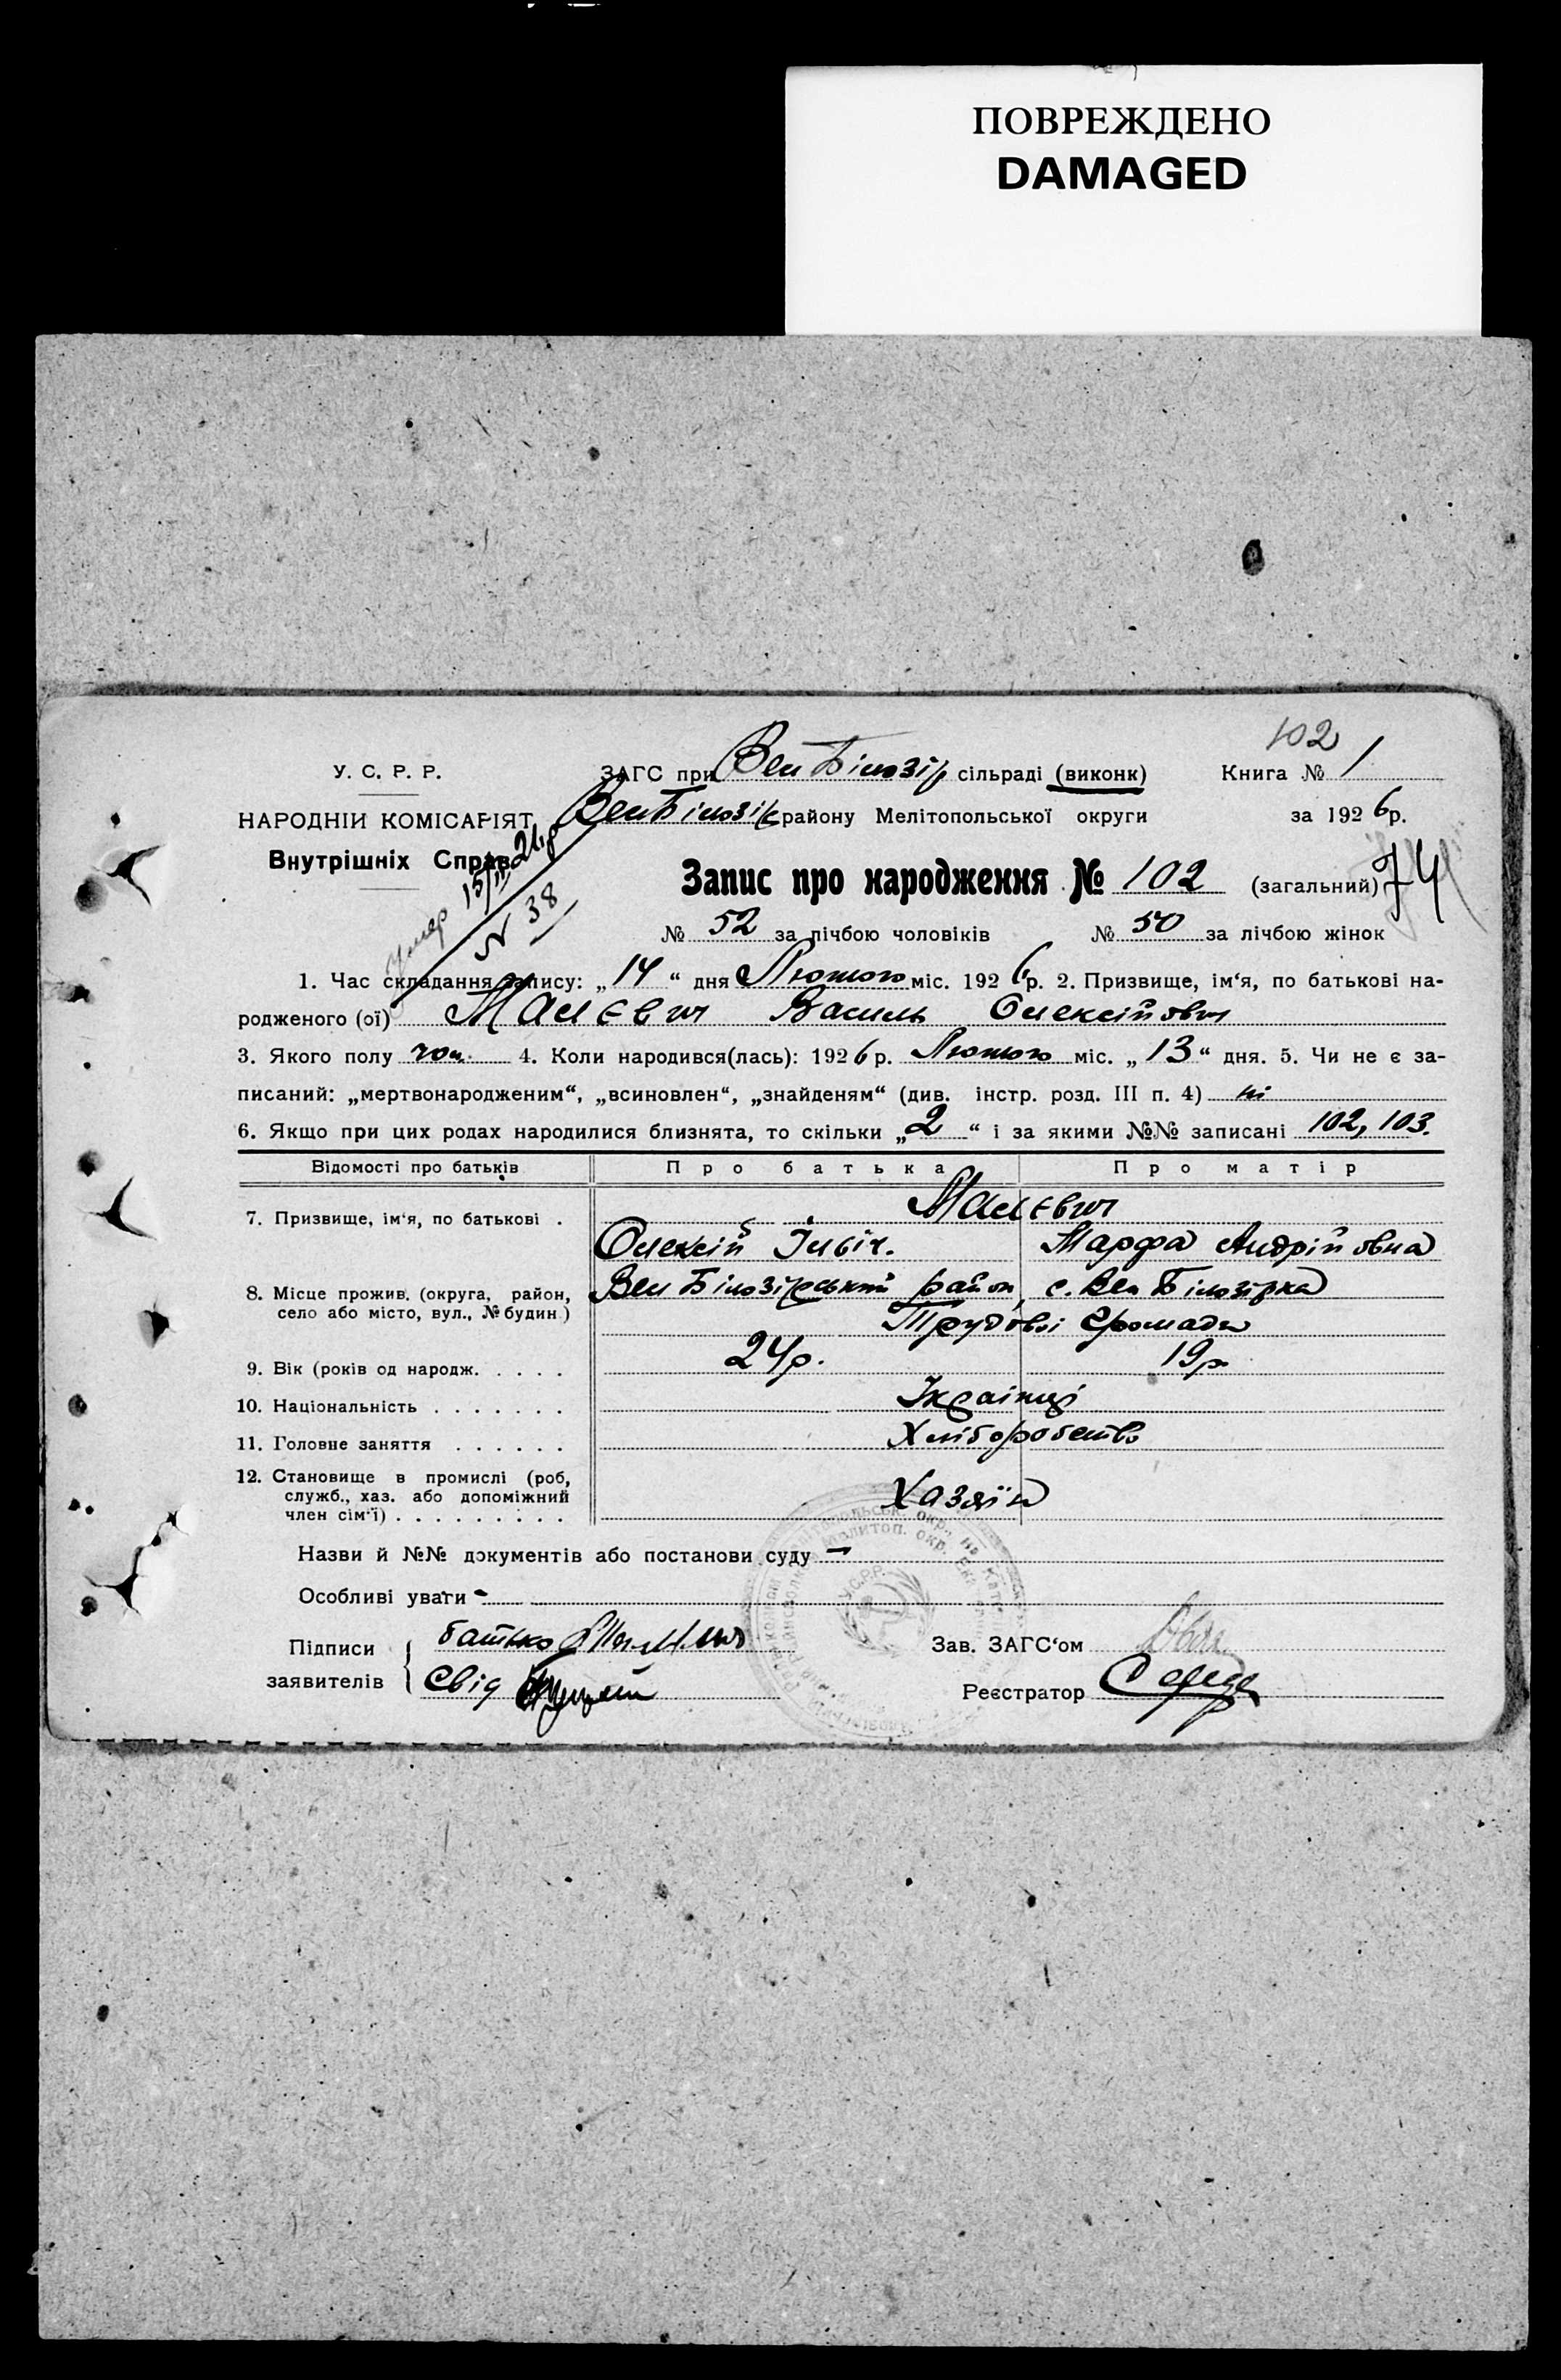 ПОВРЕЖДЕНО
DAMAGED
102
У. С. Р. Р. ЗАГС при Вел Білозір сільраді (виконк) Книга № 1
НАРОДНІЙ КОМІСАРІЯТ Вел Білозір району Мелітопольської округи за 1926 р.
Внутрішніх Справ
Умер 15/III 26 р
N 38
Запис про народження № 102 (загальний) 74
№ 52 за лічбою чоловіків № 50 за лічбою жінок
1. Час складання запису: „14“ дня Лютого міс. 1926 р. 2. Призвище, ім‘я, по батькові на-
родженого (ої) Малєвич Василь Олексійович
3. Якого полу чол. 4. Коли народився(лась): 1926 р. Лютого міс. „13“ дня. 5. Чи не є за-
писаний: „мертвонародженим“, „всиновлен“, „знайденям“ (див. інстр. розд. III п. 4) ні
6. Якщо при цих родах народилися близнята, то скільки „2“ і за якими №№ записані 102, 103.
Відомості про батьків Про батька Про матір
Малєвич
7. Призвище, ім‘я, по батькові . Олексій Ільіч. Марфа Андрійовна
8. Місце прожив. (округа, район, Вел Білозірський район, с. Вел Білозірка
село або місто, вул., № будин.) Трудової Громади
9. Вік (років од народж. . . . . 24 р. 19 р.
10. Національність . . . . . . . Українці
11. Головне заняття . . . . . . Хліборобство
12. Становище в промислі (роб,
служб., хаз. або допоміжний Хазяїн
член сім‘ї) . . . . . . . . .
Назви й №№ документів або постанови суду —
Особливі уваги -
Підписи батько Зав. ЗАГС‘ом
заявителів Свід Реєстратор Середа
У.С.Р.Р.